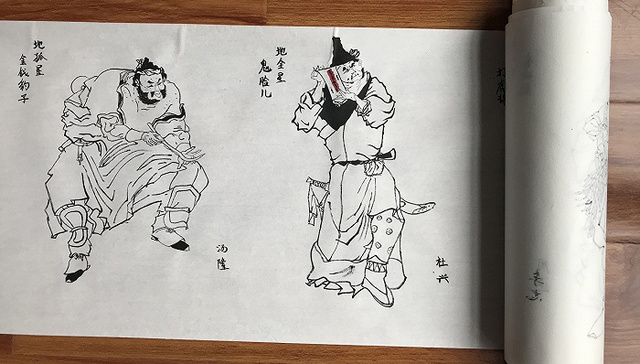 地孤星
金钱豹子
汤隆
地全星
鬼脸儿
杜兴